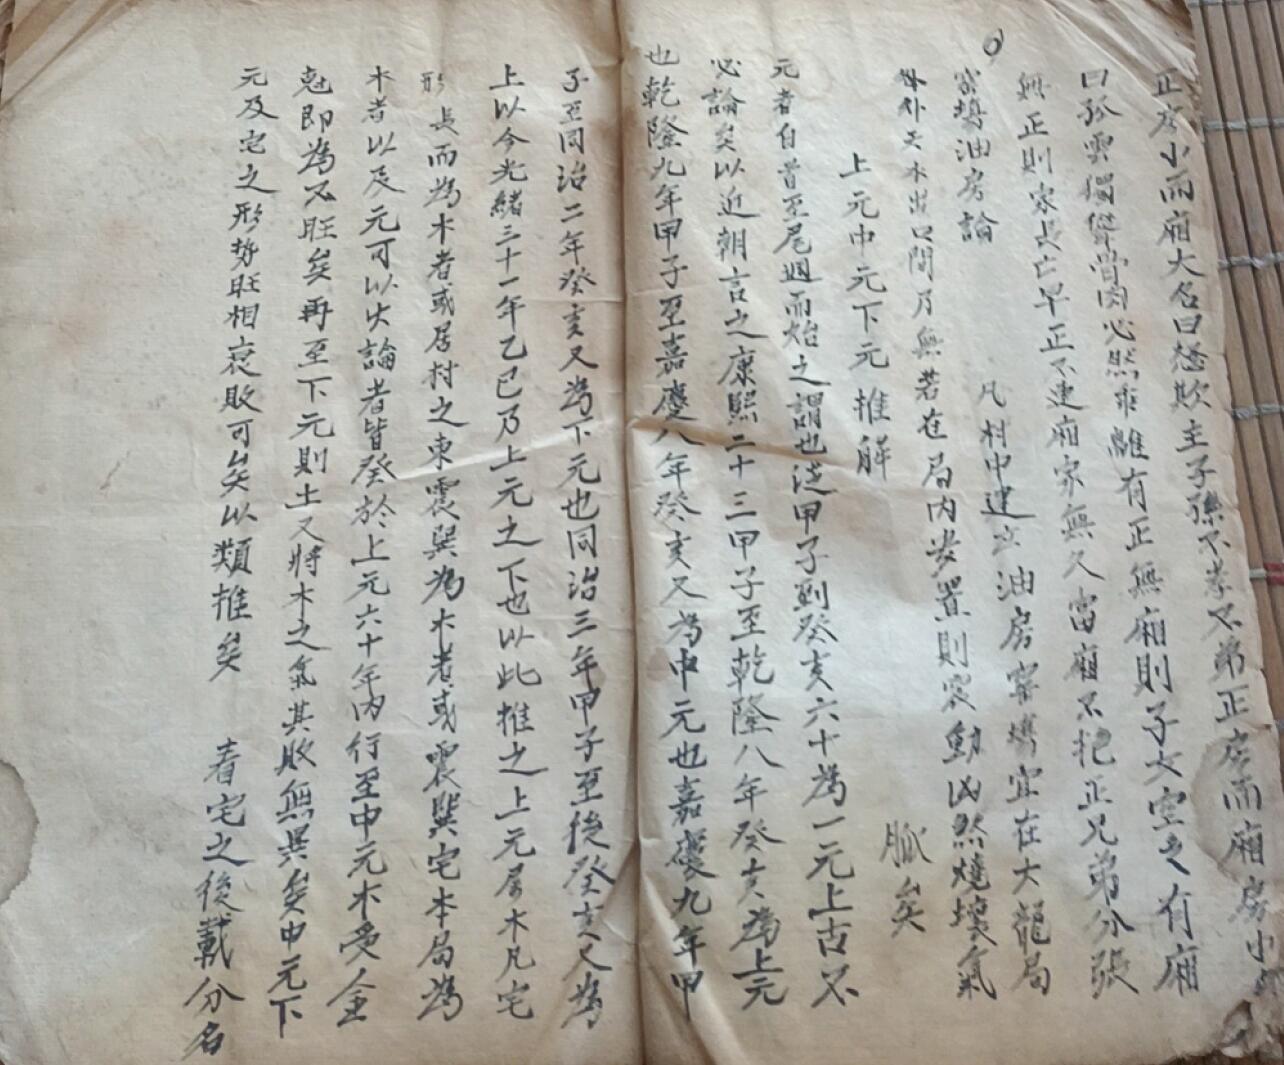 正房小而廂大名曰愆欺主子孫不孝不弟正房而廂房小
曰孤雲獨聳骨肉必然乖離有正無廂則子女空之有廂
無正則家長亡早正不建廂家無久富廂不把正兄弟分張
窰塲油房論　凡村中建立油房窰塲宜在大龍局
外天木出口間乃無若在局内安置則震動凶煞燒壞氣
脈矣
上元中元下元推解
元者自首至尾週而始之謂也從甲子到癸亥六十為一元上古不
必論矣以近朝言之康熙二十三甲子至乾隆八年癸亥為上元
也乾隆九年甲子至嘉慶八年癸亥又為中元也嘉慶九年甲
子至同治二年癸亥又為下元也同治三年甲子至後癸亥又為
上以今光緒三十一年乙巳乃上元之下也以此推之上元屬木凡宅
形長而為木者或居村之東震巽為木者或震巽宅本局為
木者以及元可以火論者皆發於上元六十年内行至中元木受金
尅即為不旺矣再至下元則土又將木之氣其敗無異矣中元下
元及宅之形势旺相衰敗可矣以類推矣　看宅之後載分名